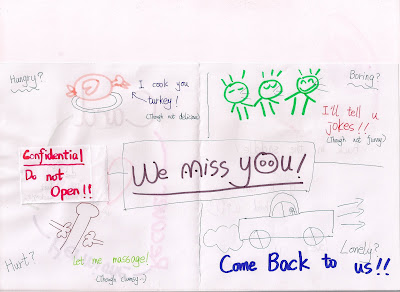 Hungry?
I cook you
turkey!
(Though not delicious)
Boring?
I'll tell u
jokes!!
(Though not funny)
Confidential
Do not
Open!!
We miss you!
Hurt?
let me massage!
(Though clumsy~)
Lonely?
Come Back to us!!